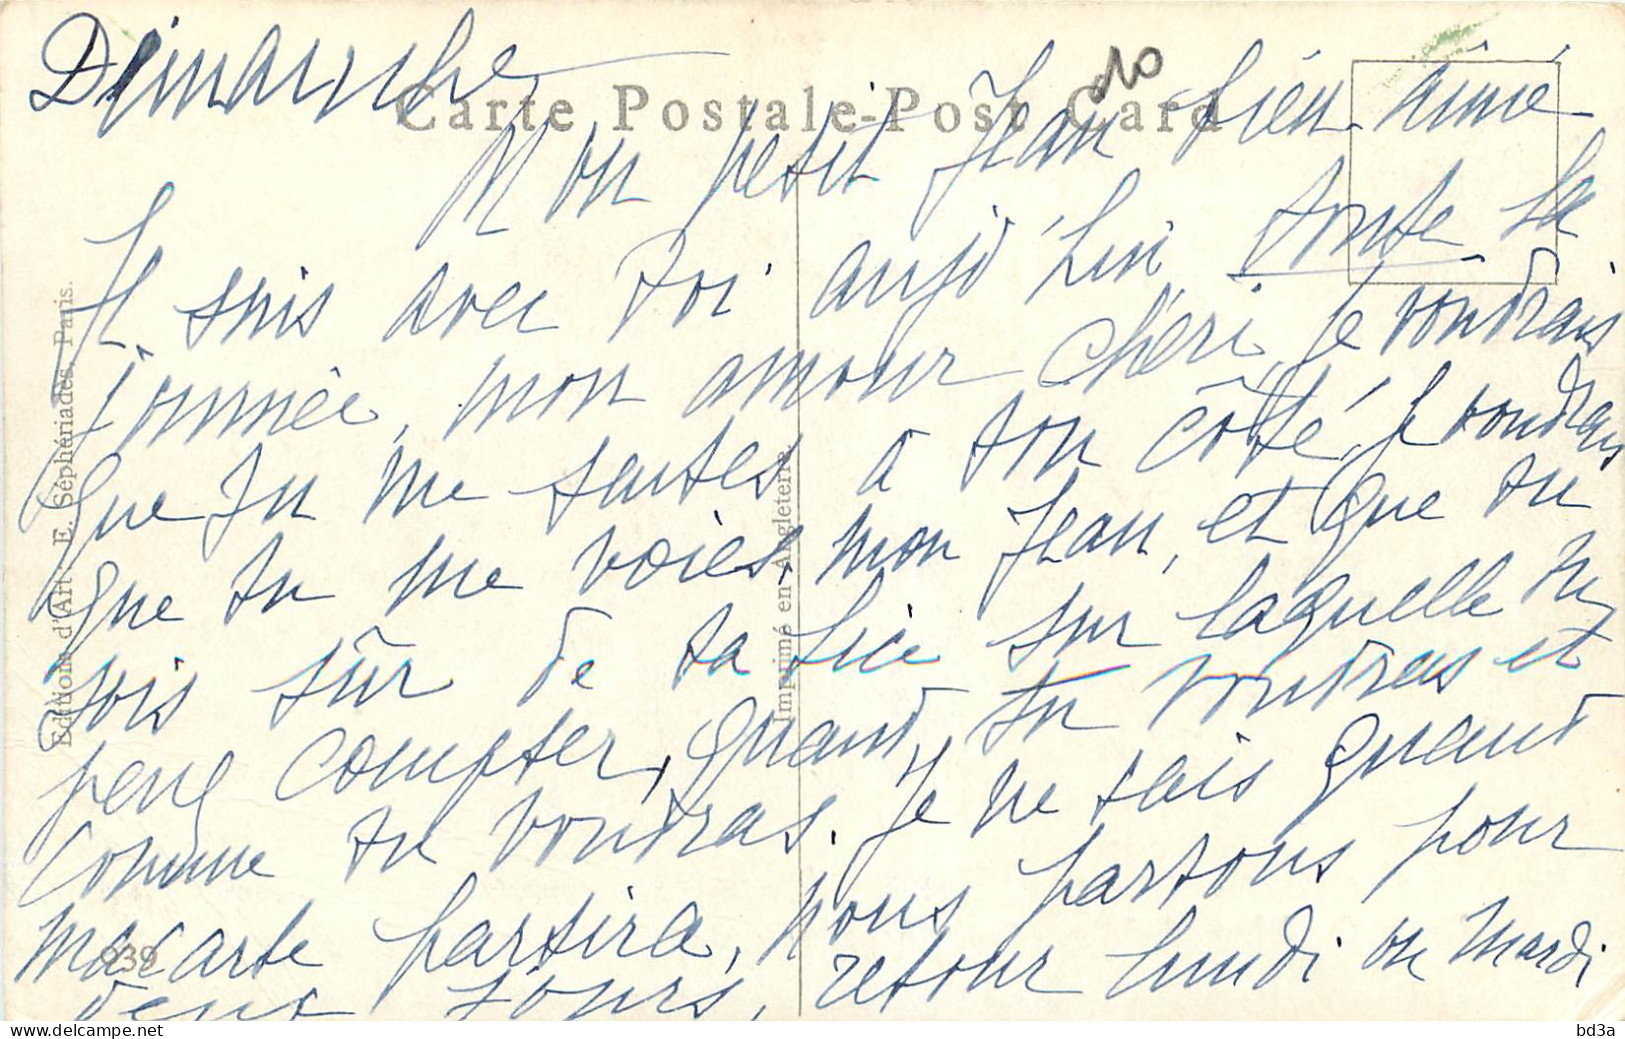 Dimanche
Carte Postale-Post Card
Mon petit Jean bien aimé
Je suis avec toi aujd'hui toute la
journée, mon amour chéri, je voudrais
que tu me sentes à ton côté, je voudrais
que tu me voies, mon Jean, et que tu
sois sûr de ta Lice sur laquelle tu
peux compter, quand tu voudras et
comme tu voudras. Je ne sais quand
ma carte partira, nous partons pour
deux jours, retour lundi ou mardi
Editions d'Art: E. Séphériadès, Paris.
Imprimé en Angleterre.
939
delcampe.net
bd3a